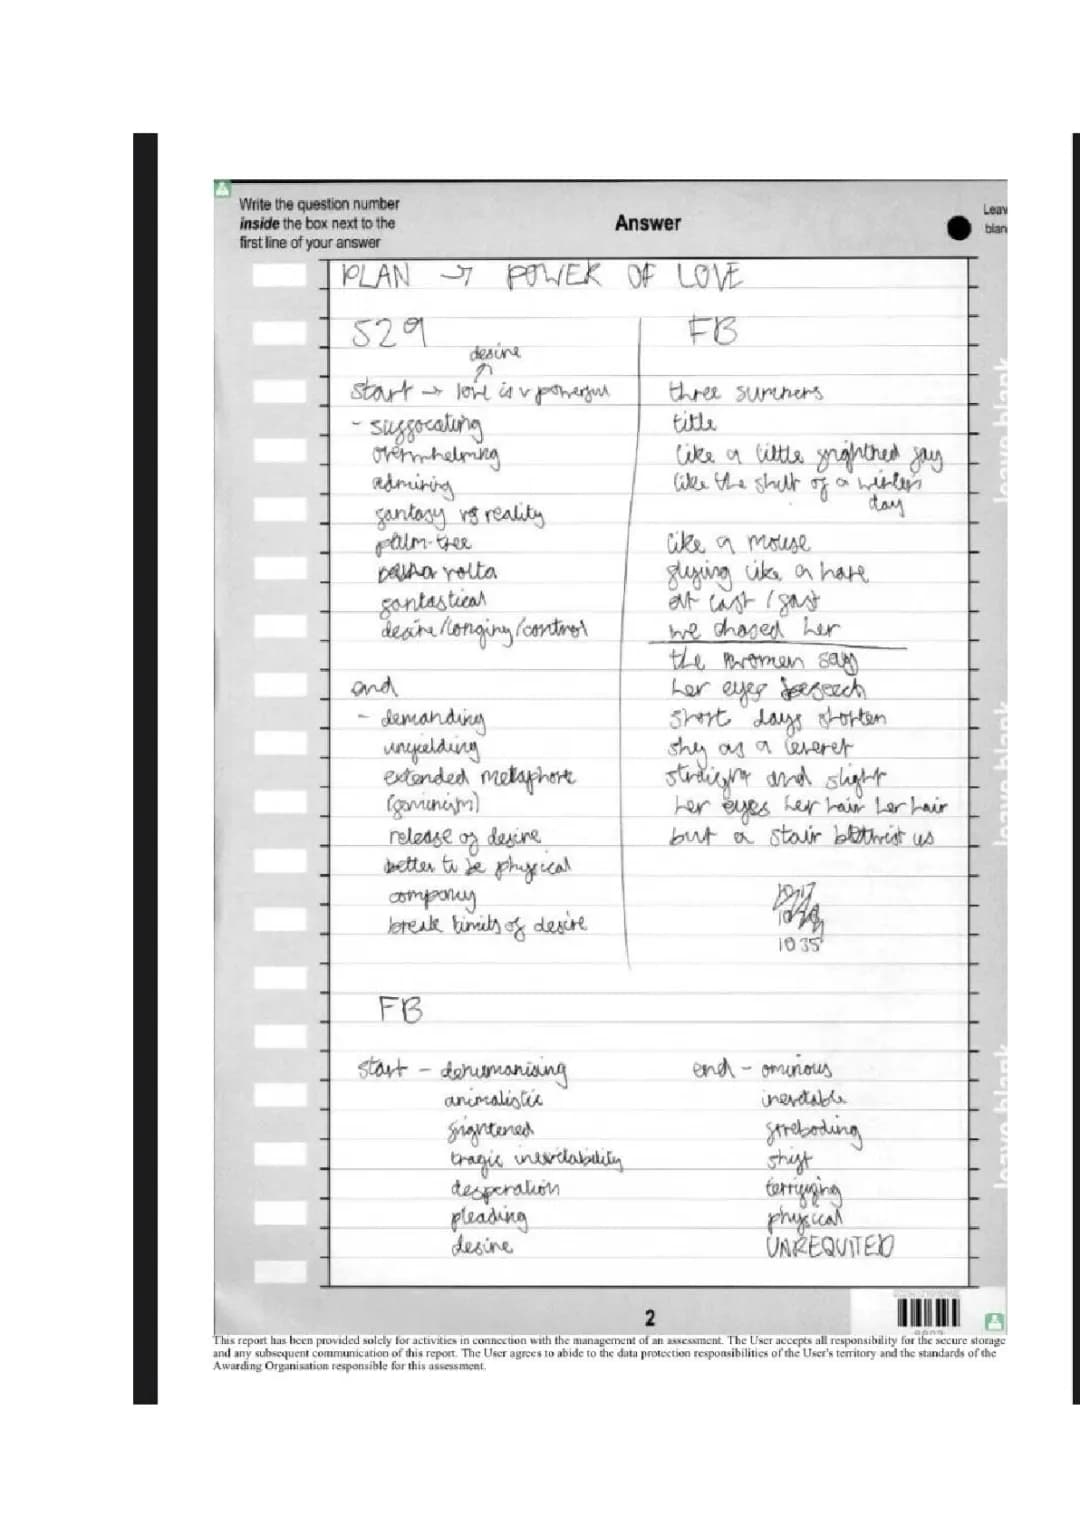 Write the question number
inside the box next to the
first line of your answer
Answer
Leav
blan
PLAN → POWER OF LOVE
S29
desire
↑
start → love is v powerful
- suffocating
overwhelming
admiring
fantasy vs reality
palm-tree
volta
fantastical
desire/longing/control
end
- demanding
unyielding
extended metaphore
(feminism)
release of desire
better to be physical
company
break limits of desire
FB
three summers
title
like a little frightned fay
like the shut of a winter's
day
like a mouse
flying like a hare
at last / fast
we chased her
the women say
her eyes beseech
short days shorten
shy as a leveret
straight and slight
her eyes her hair her hair
but a stair betwixt us
1035
FB
start - dehumanising
animalistic
frightened
tragic inevitability
desperation
pleading
desire
end - ominous
inevitable
foreboding
shift
terrifying
physical
UNREQUITED
leave blank
leave blank
leave blank
2
This report has been provided solely for activities in connection with the management of an assessment. The User accepts all responsibility for the secure storage
and any subsequent communication of this report. The User agrees to abide to the data protection responsibilities of the User's territory and the standards of the
Awarding Organisation responsible for this assessment.